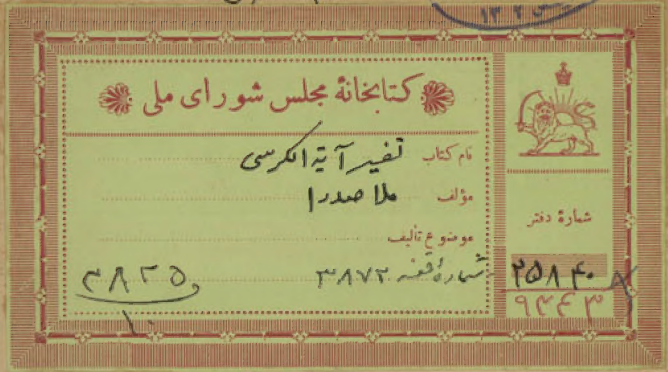 ۱۳۰۲
کتابخانهٔ مجلس شورای ملی
نام کتاب تفسیر آیة الکرسی
مؤلف ملا صدرا
موضوع تألیف
شماره قفسه ۳۸۷۲
۳۸۲۵
۱۰
شمارهٔ دفتر
۲۵۸۴۰
۹۴۴۳